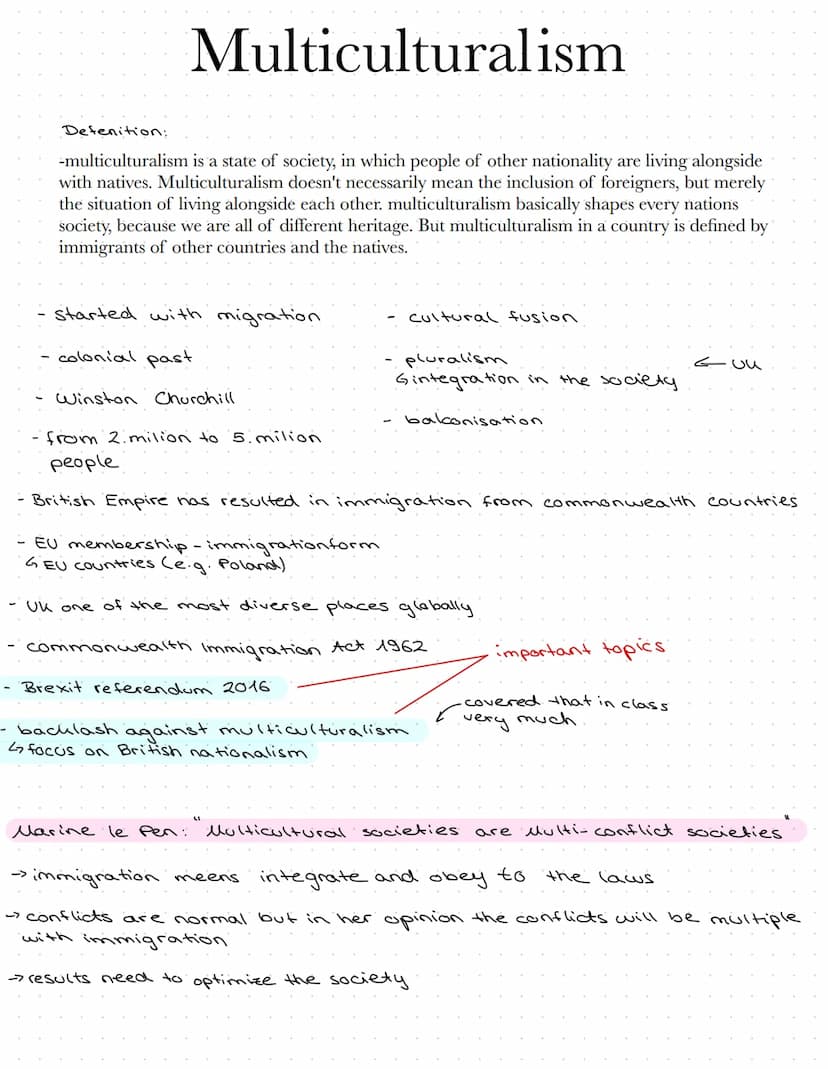 Multiculturalism
Defenition:
-multiculturalism is a state of society, in which people of other nationality are living alongside
with natives. Multiculturalism doesn't necessarily mean the inclusion of foreigners, but merely
the situation of living alongside each other. multiculturalism basically shapes every nations
society, because we are all of different heritage. But multiculturalism in a country is defined by
immigrants of other countries and the natives.
- started with migration
- colonial past
- Winston Churchill
- from 2.milion to 5.milion
people
- cultural fusion
- pluralism
↳ integration in the society
← UK
- balconisation
- British Empire has resulted in immigration from commonwealth countries
- EU membership - immigrationform
↳ EU countries (e.g. Poland)
- UK one of the most diverse places globally
- commonwealth Immigration Act 1962
important topics
- Brexit referendum 2016
covered that in class
very much
- backlash against multiculturalism
↳ focus on British nationalism
Marine le Pen: "Multicultural societies are Multi-conflict societies"
→ immigration meens integrate and obey to the laws
→ conflicts are normal but in her opinion the conflicts will be multiple
with immigration
→ results need to optimize the society